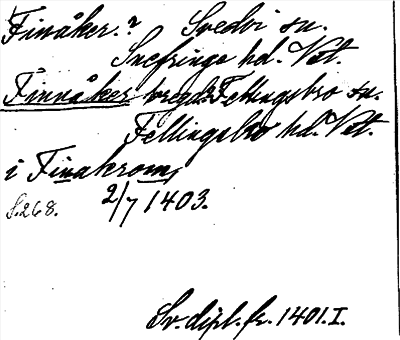 Finåker.? Svedvi sn.
Snefringe hd. Vstl.
Finnåker bregd. Fellingsbro sn.
Fellingsbro hd. Vstl.
i Finakrom,
S.268. 2/7 1403.
Sv. dipl. fr. 1401. I.